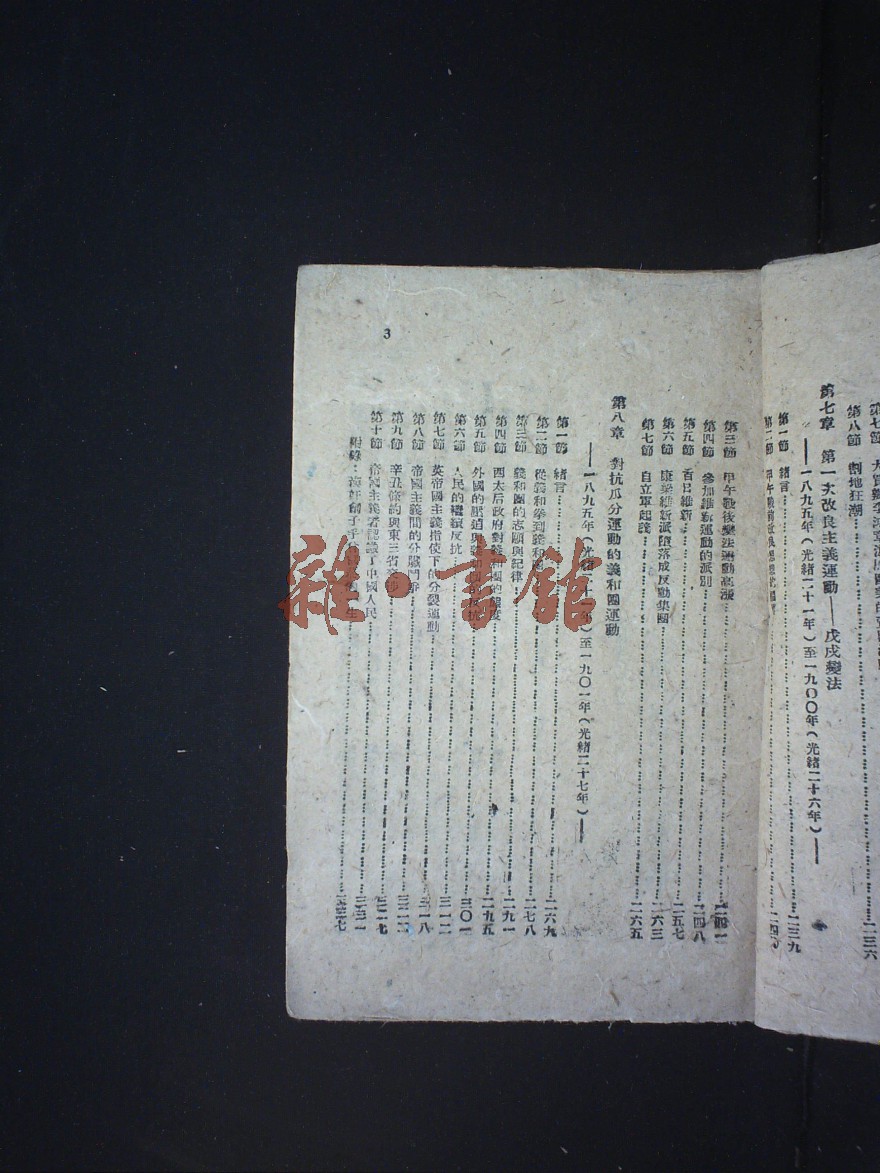 第八節 割地狂潮……二三六
第七章 第一次改良主義運動——戊戌變法
——一八九五年(光緒二十一年)至一九〇〇年(光緒二十六年)——
第一節 緒言……二三九
第二節 甲午戰前改良思想的
第三節 甲午戰後變法運動高漲……二四二
第四節 參加維新運動的派別……二四八
第五節 百日維新……二五七
第六節 康梁維新派墮落成反動集團……二六三
第七節 自立軍起義……二六五
第八章 對抗瓜分運動的義和團運動
——一八九五年(光緒二十一年)至一九〇一年(光緒二十七年)——
第一節 緒言……二六九
第二節 從義和拳到義和團……二七八
第三節 義和團的志願與紀律……二九一
第四節 西太后政府對義和團的態度……二九五
第五節 外國的壓迫與義和團的反抗……三〇一
第六節 人民的繼續反抗……三一二
第七節 英帝國主義指使下的分裂運動……三一八
第八節 帝國主義間的分贓鬥爭……三二二
第九節 辛丑條約與東三省交涉……三二七
第十節 帝國主義者認識了中國人民……三三一
附錄：漢奸劊子手……三三七
3
雜·書館